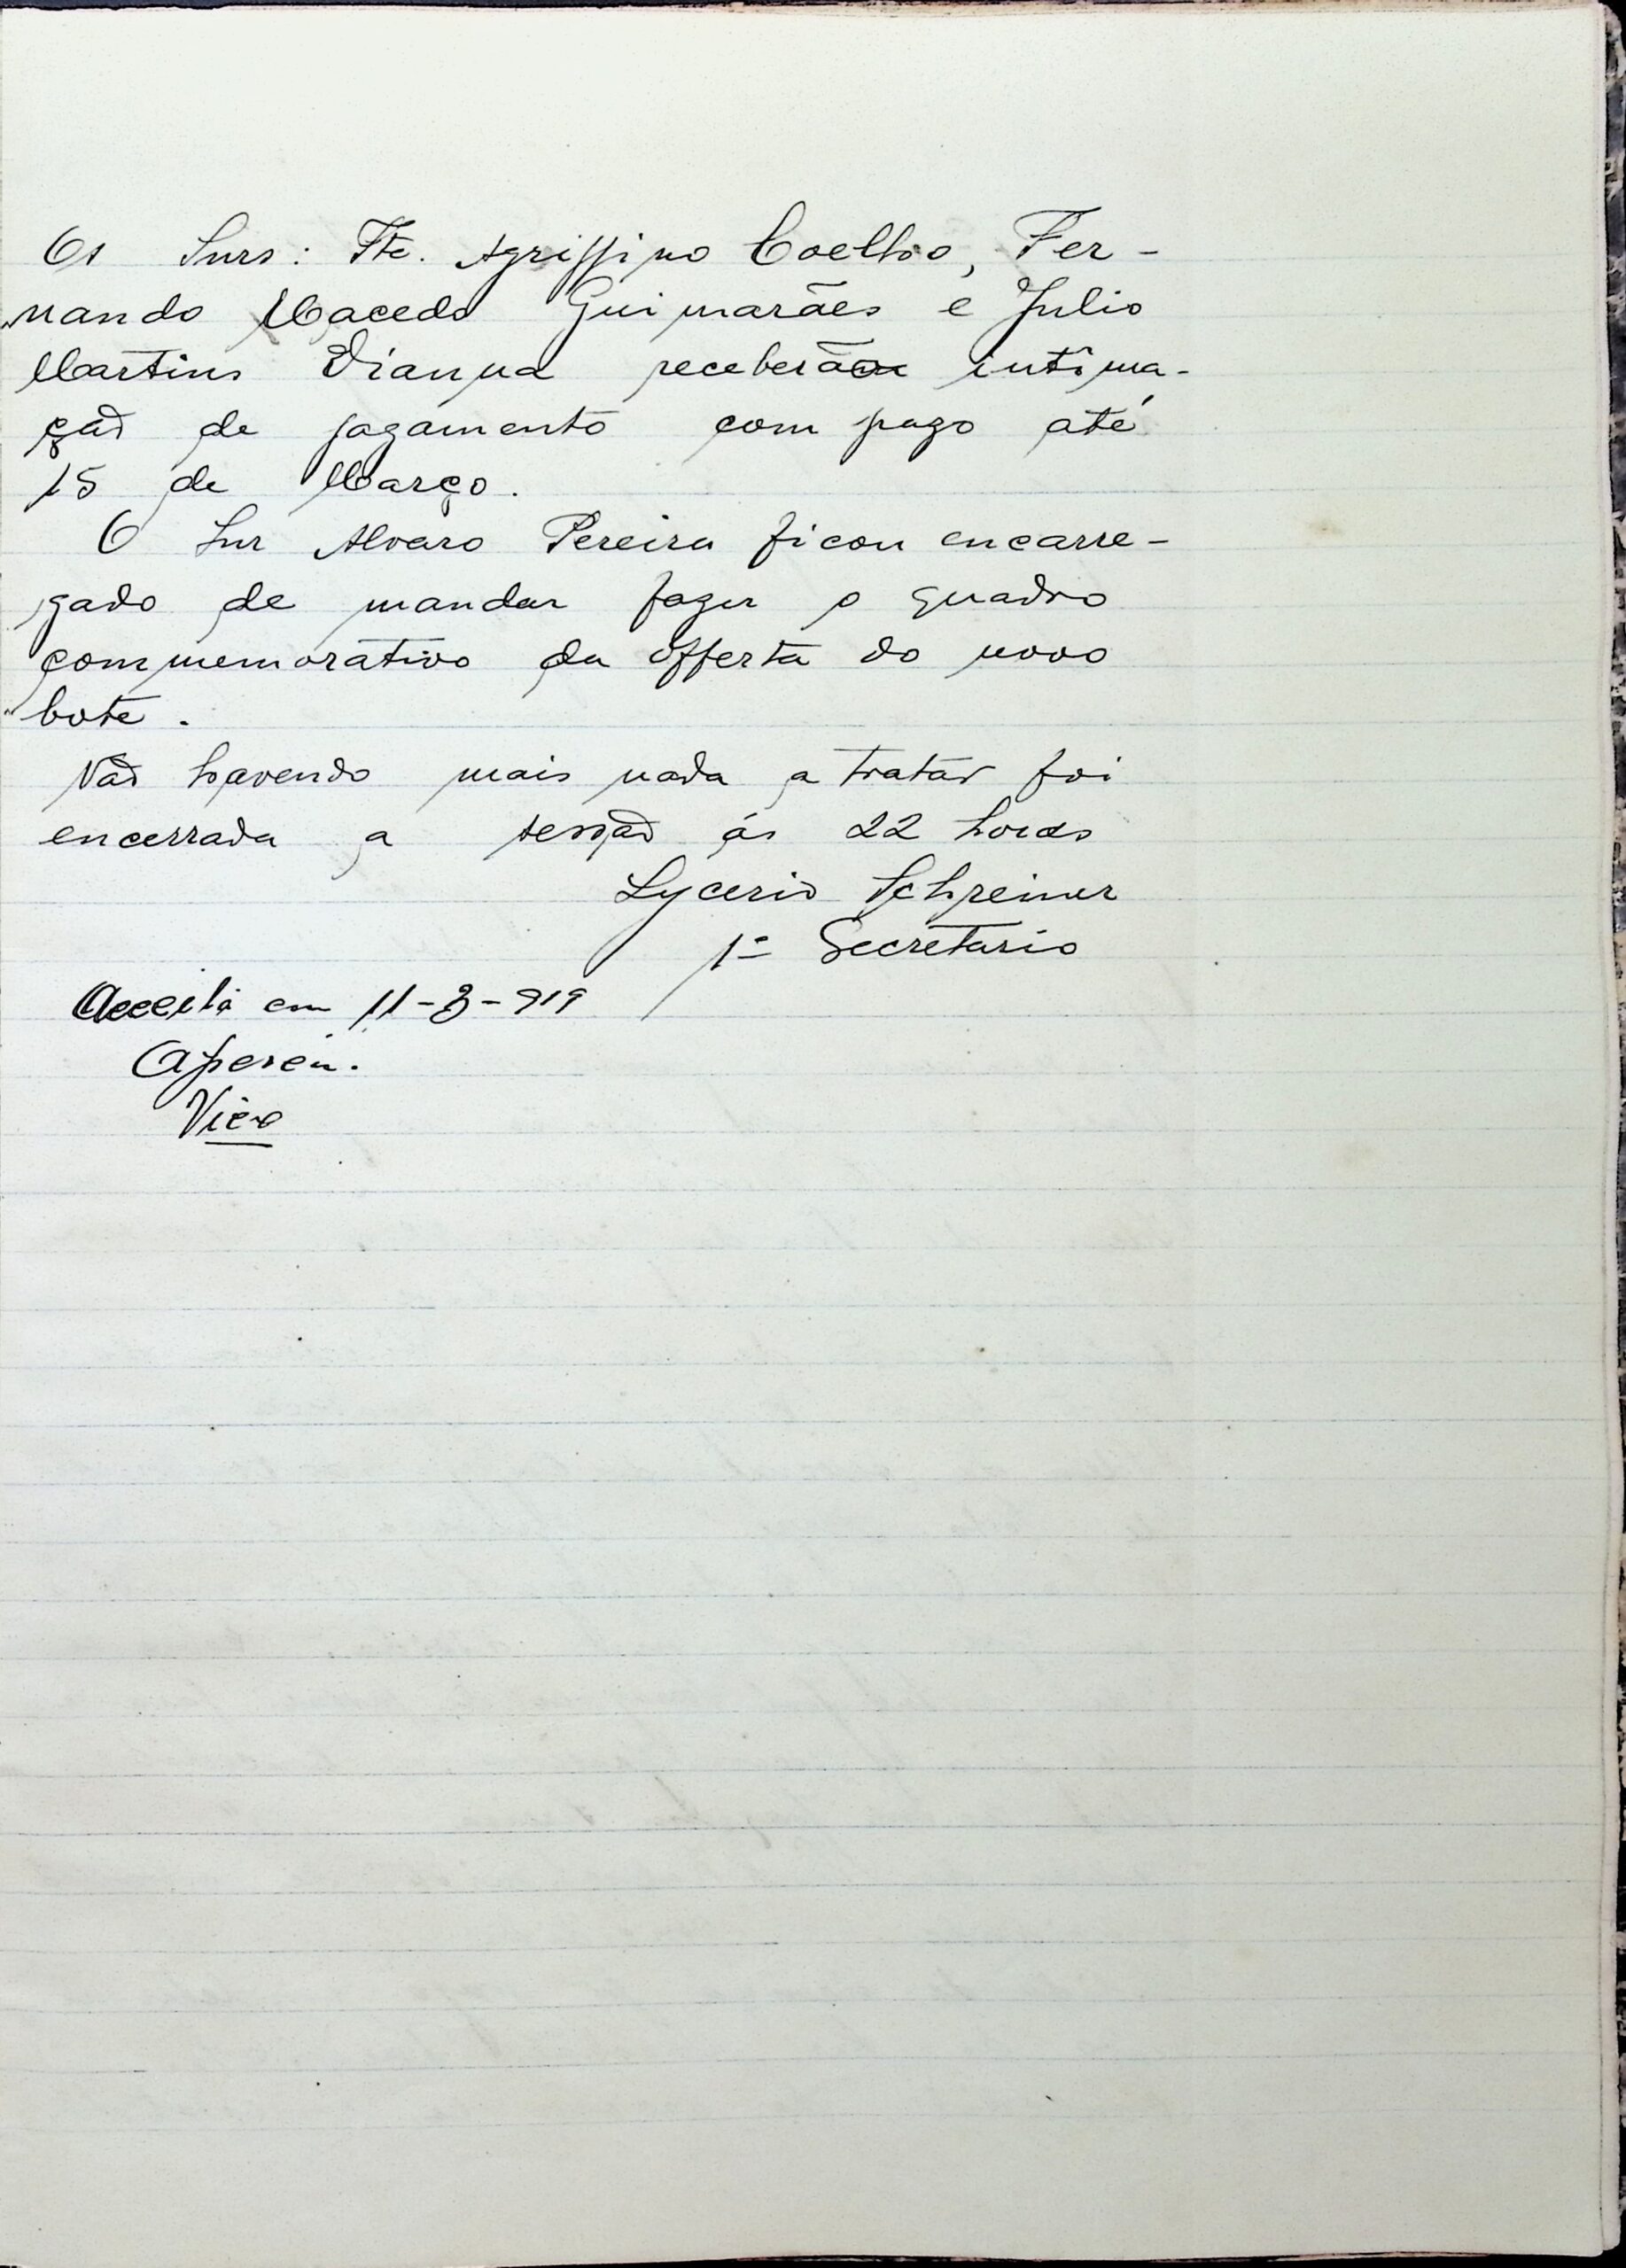 Os Snrs: Tte. Agrippino Coelho, Fer-
nando Macedo Guimarães e Julio
Martins Vianna receberão intima-
ção de pagamento com prazo até
15 de Março.
O Snr Alvaro Pereira ficou encarre-
gado de mandar fazer o quadro
commemorativo da offerta do novo
bote.
Não havendo mais nada a tratar foi
encerrada a sessão ás 22 horas
Lycerio Schreiner
1º Secretario
Acceita em 11-3-919